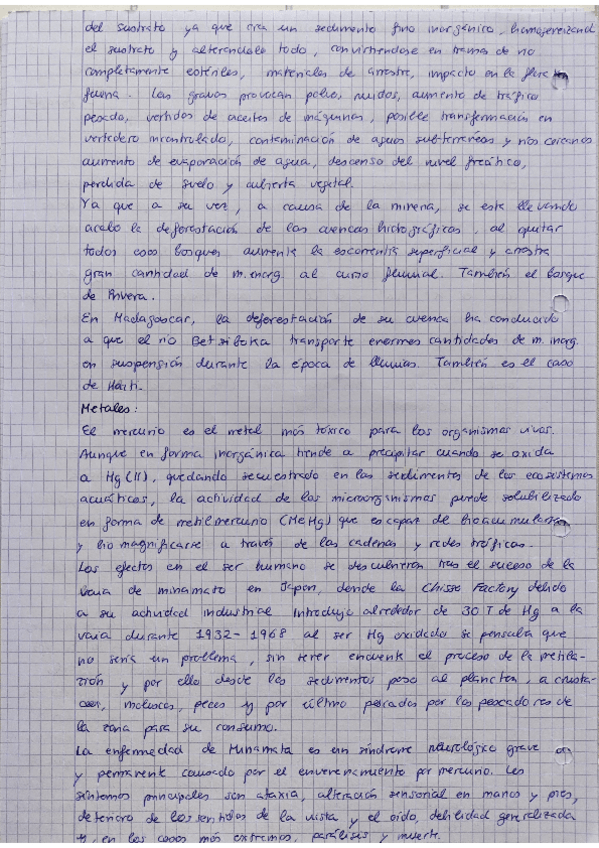 del sustrato ya que crea un sedimento fino inorgánico, homogeneizand
el sustrato y alterandolo todo, convirtiendose en tramos de río
completamente estériles, materiales de arrastre, impacto en la flora y
fauna. Las gravas provocan polvo, ruidos, aumento de tráfico
pesado, vertidos de aceites de máquinas, posible transformación en
vertedero incontrolado, contaminación de aguas subterráneas y ríos cercanos
aumento de evaporación de agua, descenso del nivel freático,
perdida de suelo y cubierta vegetal.
Ya que a su vez, a causa de la minería, se este llevando
acabo la deforestación de las cuencas hidrográficas, al quitar
todos esos bosques aumenta la escorrentía superficial y arrastra
gran cantidad de m.inorg. al curso fluvial. También el bosque
de Rivera.
En Madagascar, la deforestación de su cuenca ha conducido
a que el río Betsiboka transporte enormes cantidades de m. inorg.
en suspensión durante la época de lluvias. También es el caso
de Haití.
Metales:
El mercurio es el metal más tóxico para los organismos vivos.
Aunque en forma inorgánica tiende a precipitar cuando se oxida
a Hg (II), quedando secuestrado en los sedimentos de los ecosistemas
acuáticos, la actividad de los microorganismos puede solubilizado
en forma de metilmercurio (MeHg) que es capaz de bioacumularse
y biomagnificarse a través de las cadenas y redes tróficas.
Los efectos en el ser humano se descubrieron tras el suceso de la
baia de minamata en Japon, donde la Chisso Factory debido
a su actividad industrial introdujo alrededor de 30 T de Hg a la
vaia durante 1932-1968 al ser Hg oxidado se pensaba que
no seria un problema, sin tener encuente el proceso de la metila-
ción y por ello desde los sedimentos paso al plancton, a crusta-
ceos, moluscos, peces y por último pescados por los pescadores de
la zona para su consumo.
La enfermedad de Minamata es un síndrome neurológico grave
y permanente causado por el envenenamiento por mercurio. Los
síntomas principales son ataxia, alteración sensorial en manos y pies,
deterioro de los sentidos de la vista y el oído, debilidad generalizada
y, en los casos más extremos, parálisis y muerte.